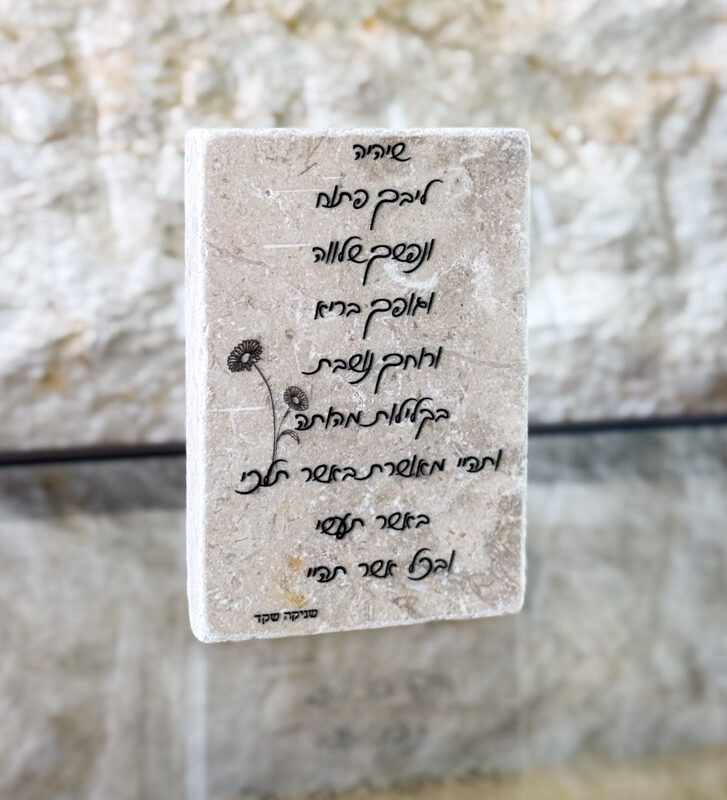 שיהיה
ליבך פתוח
ונפשך שלווה
וגופך בריא
ורוחך נושבת
בקלילות מהותה
ותהיי מאושרת באשר תלכי
באשר תעשי
ובכל אשר תהיי
שניקה שקד